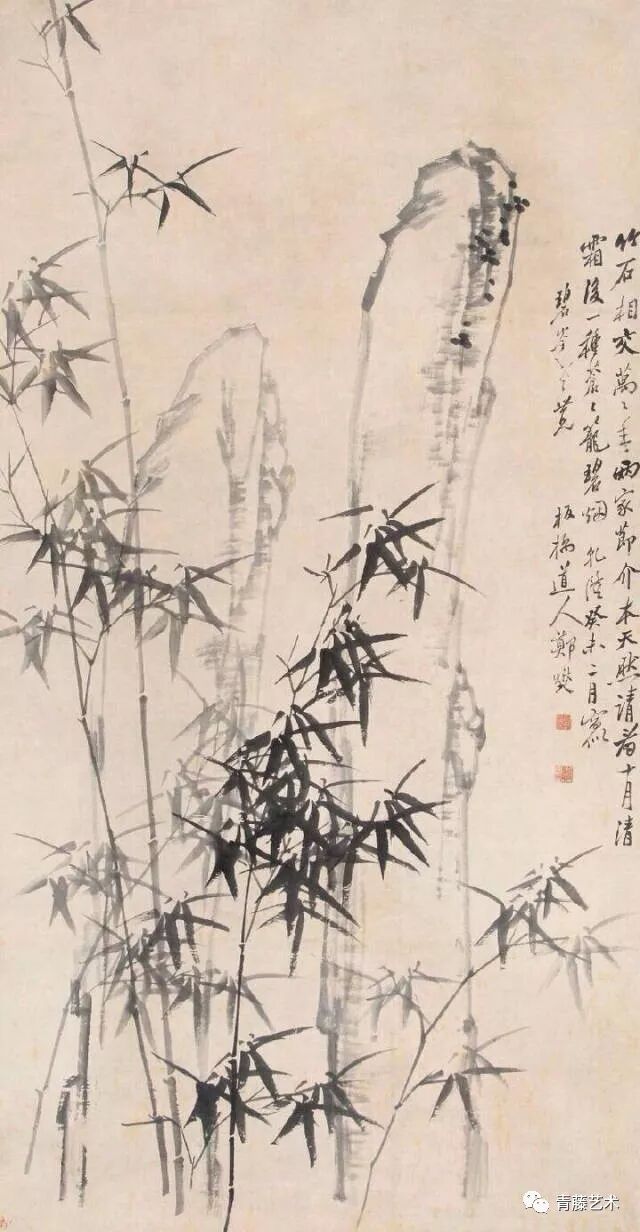 竹石相交萬〻年兩家節介本天然請看十月清
霜後一種蒼〻籠碧烟 乾隆癸未二月寫似
碧 兄 板橋道人鄭燮
青藤艺术